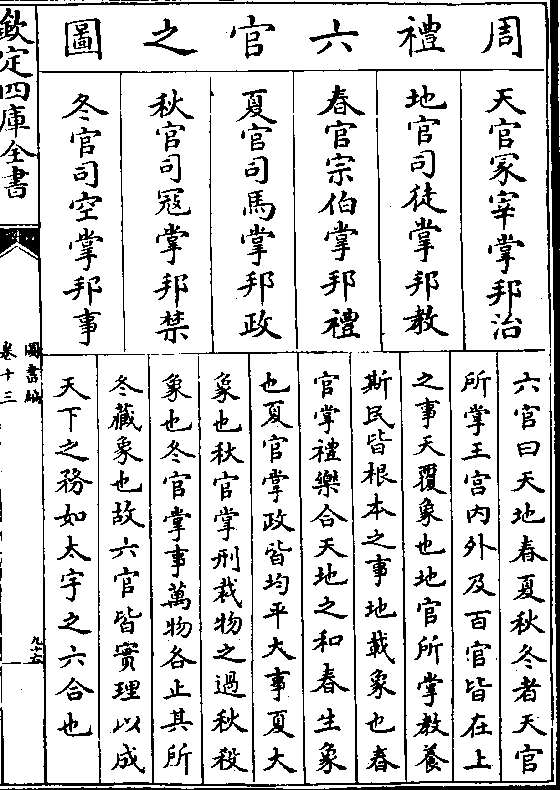 周禮六官之圖
天官冢宰掌邦治
地官司徒掌邦教
春官宗伯掌邦禮
夏官司馬掌邦政
秋官司冦掌邦禁
冬官司空掌邦事
六官曰天地春夏秋冬者天官
所掌王宫内外及百官皆在上
之事天覆象也地官所掌教養
斯民皆根本之事地載象也春
官掌禮樂合天地之和春生象
也夏官掌政皆均平大事夏大
象也秋官掌刑裁物之過秋殺
象也冬官掌事萬物各止其所
冬藏象也故六官皆實理以成
天下之務如太宇之六合也
欽定四庫全書
圖書編
卷十三